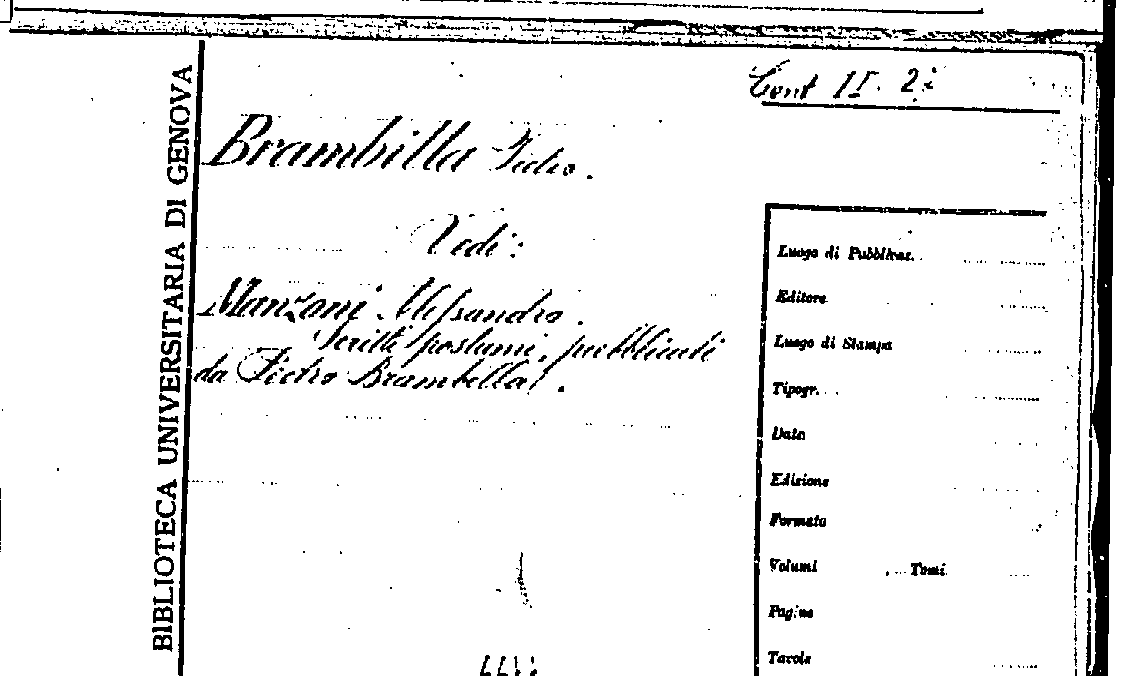 BIBLIOTECA UNIVERSITARIA DI GENOVA
Cont II. 2
Brambilla Pietro.
Vedi:
Manzoni Alessandro.
Scritti postumi, pubblicati
da Pietro Brambilla.
Luogo di Pubblicaz.
Editore
Luogo di Stampa
Tipogr.
Data
Edizione
Formato
Volumi Tomi
Pagine
Tavole